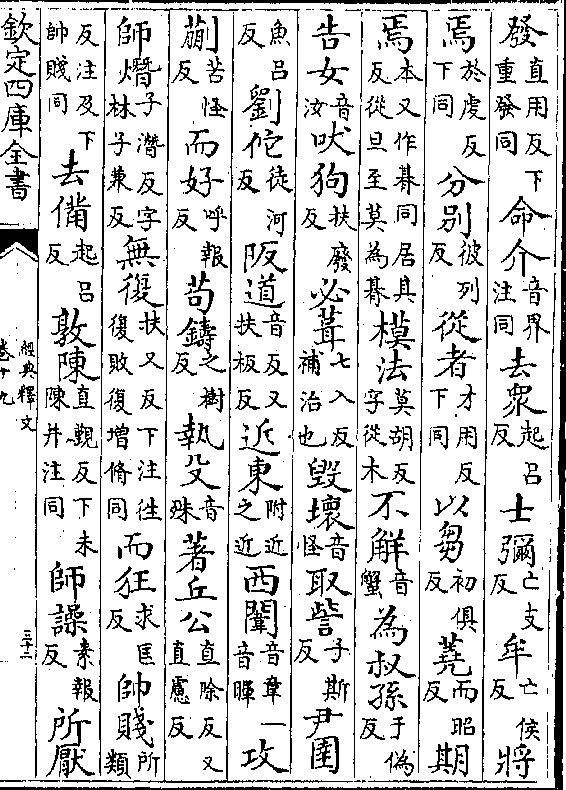 發直用反下重發同命介音界注同去眾起呂反士彌亡支反牟亡侯反將
焉於虔反下同分別彼列反從者才用反下同以芻初俱反蕘而昭反期
焉本又作朞同居具反從旦至莫為朞模法莫胡反字從木不解音蟹為叔孫于偽反
告女音汝吠狗扶廢反必葺七入反補治也毀壞音怪取訾子斯反尹圉
魚呂反劉佗徒河反阪道音反又扶板反近東附近之近西闈音韋一音暉攻
蒯苦怪反而好呼報反苟鑄之樹反執殳音殊著丘公直除反又直慮反
師熸子潛反字林子兼反無復扶又反下注往復敗復增脩同而狂求匡反帥賤所類
反注及下帥賤同去備起呂反敦陳直覲反下未陳并注同師譟素報反所厭
欽定四庫全書
經典釋文
卷十九
三十二